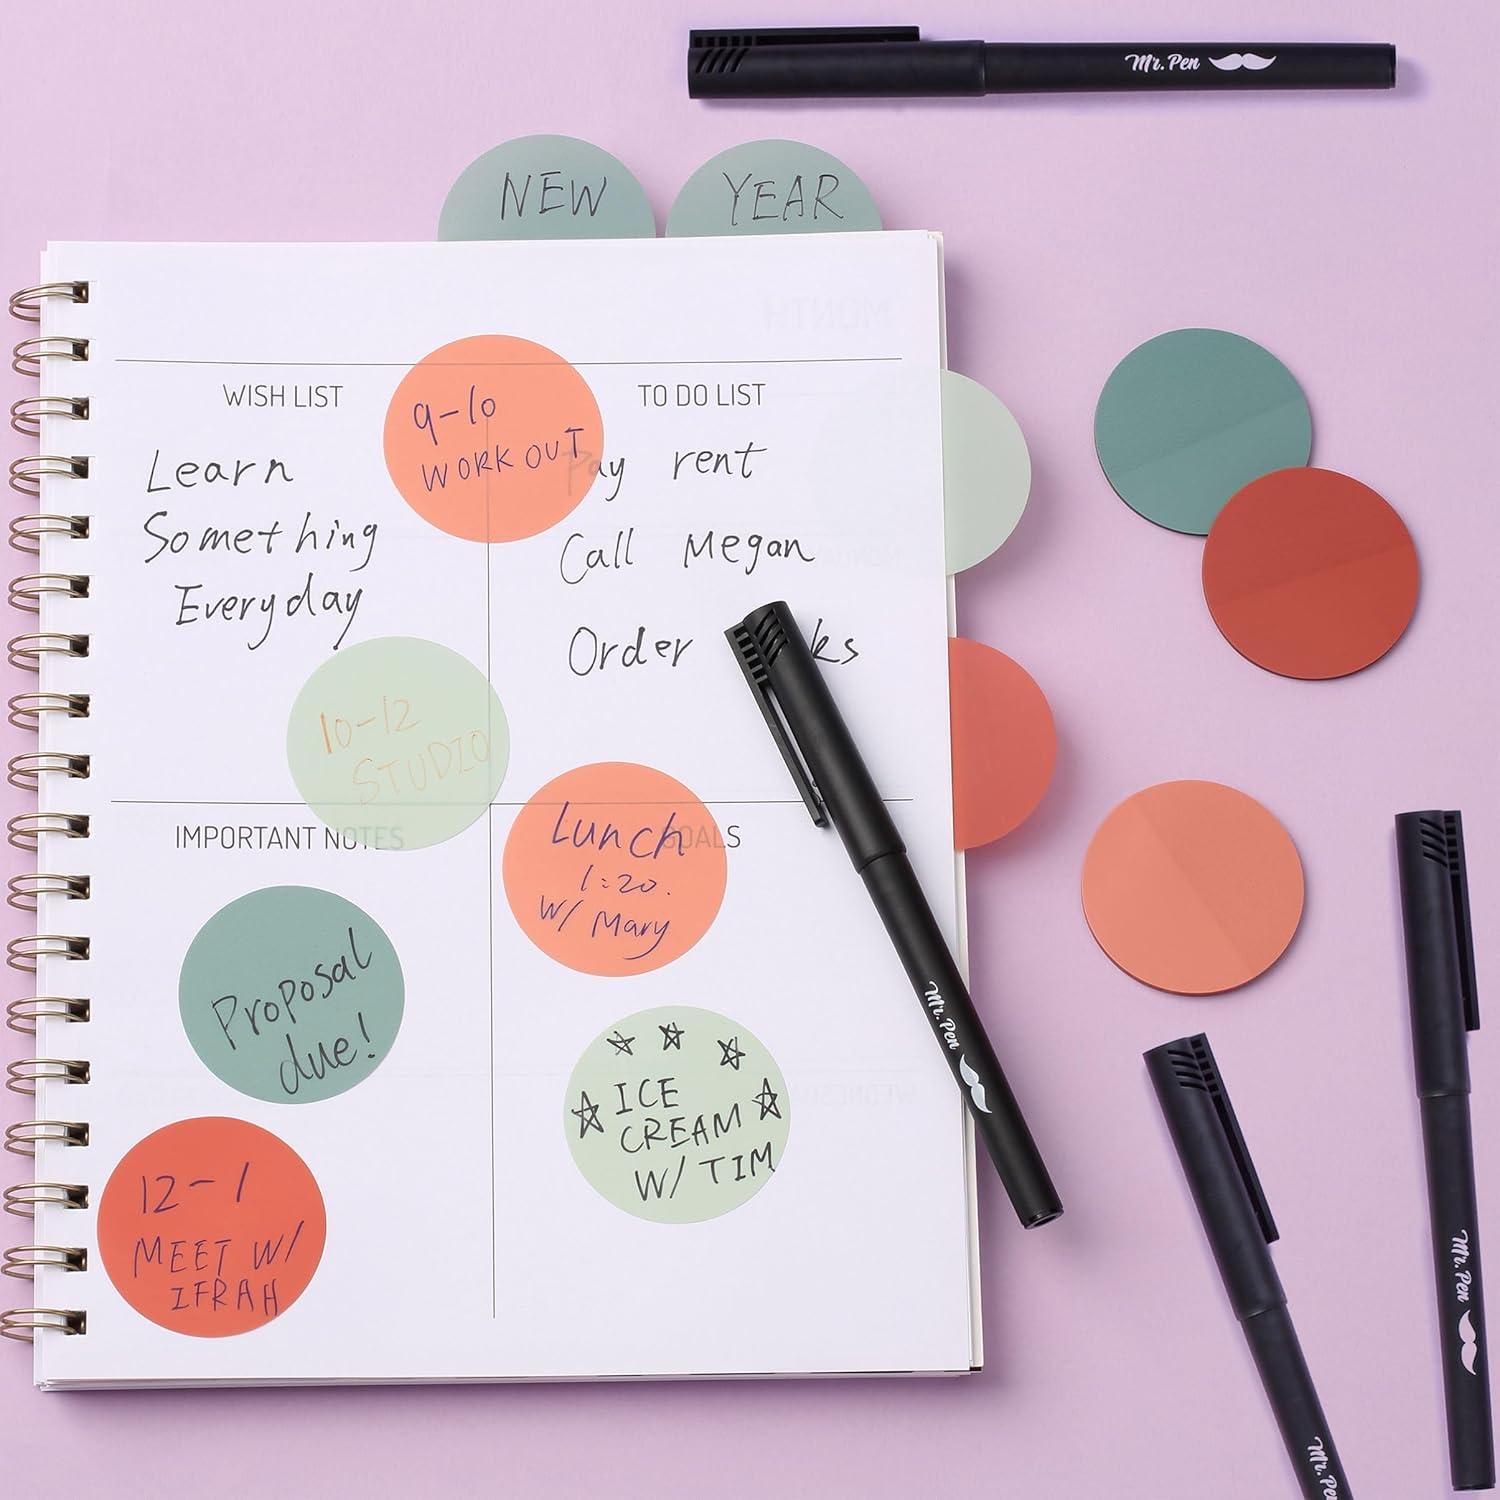 Mr. Pen
NEW
YEAR
WISH LIST
TO DO LIST
9-10
WORK OUT
Learn
Something
Everyday
Pay rent
Call Megan
Order
10-12
STUDIO
IMPORTANT NOTES
GOALS
Lunch
1:20.
W/ Mary
Proposal
due!
ICE
CREAM
W/ TIM
12-1
MEET W/
IFRAH
Mr. Pen
Mr. Pen
Mr. Pen